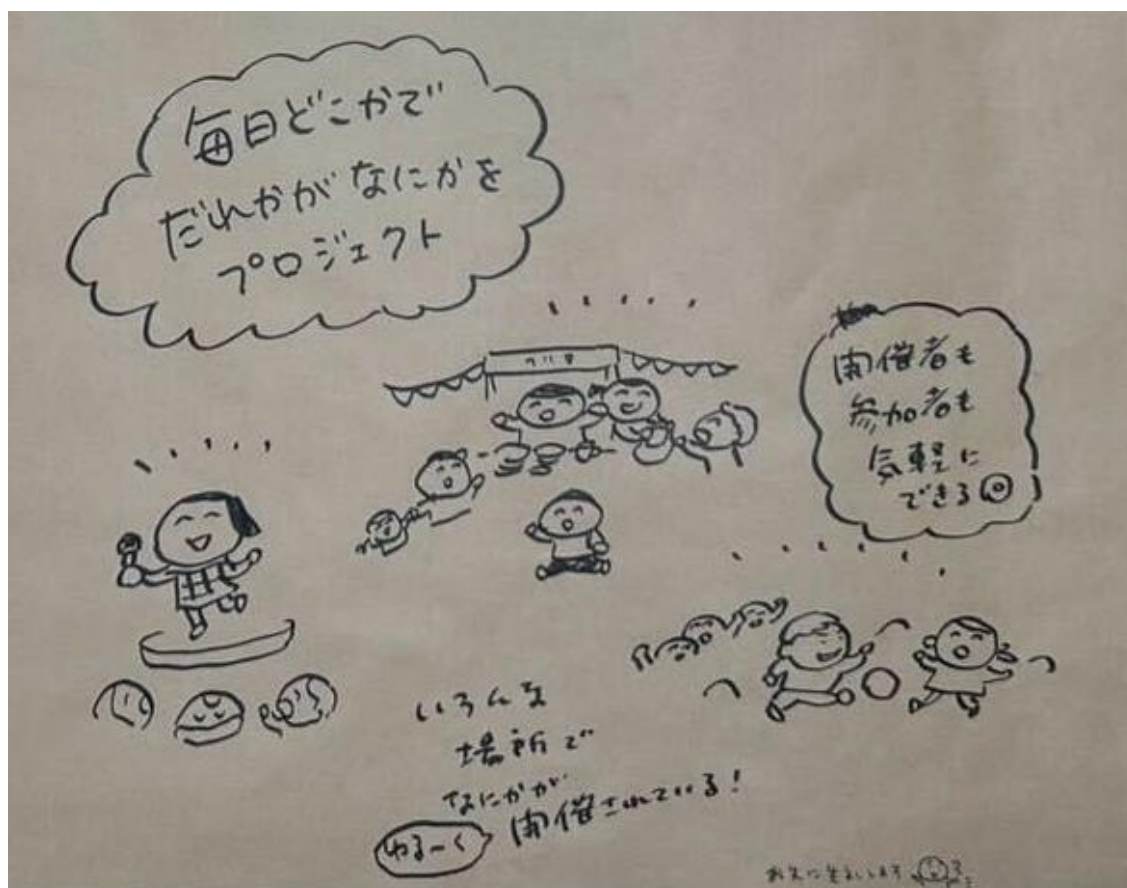 毎日どこかで
だれかがなにかを
プロジェクト
開催者も
参加者も
気軽に
できる
いろんな
場所で
なにかが
ゆるーく 開催されている!
お先に失礼します